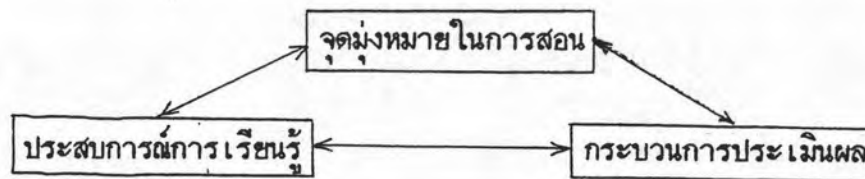 จุดมุ่งหมายในการสอน
ประสบการณ์การเรียนรู้
กระบวนการประเมินผล